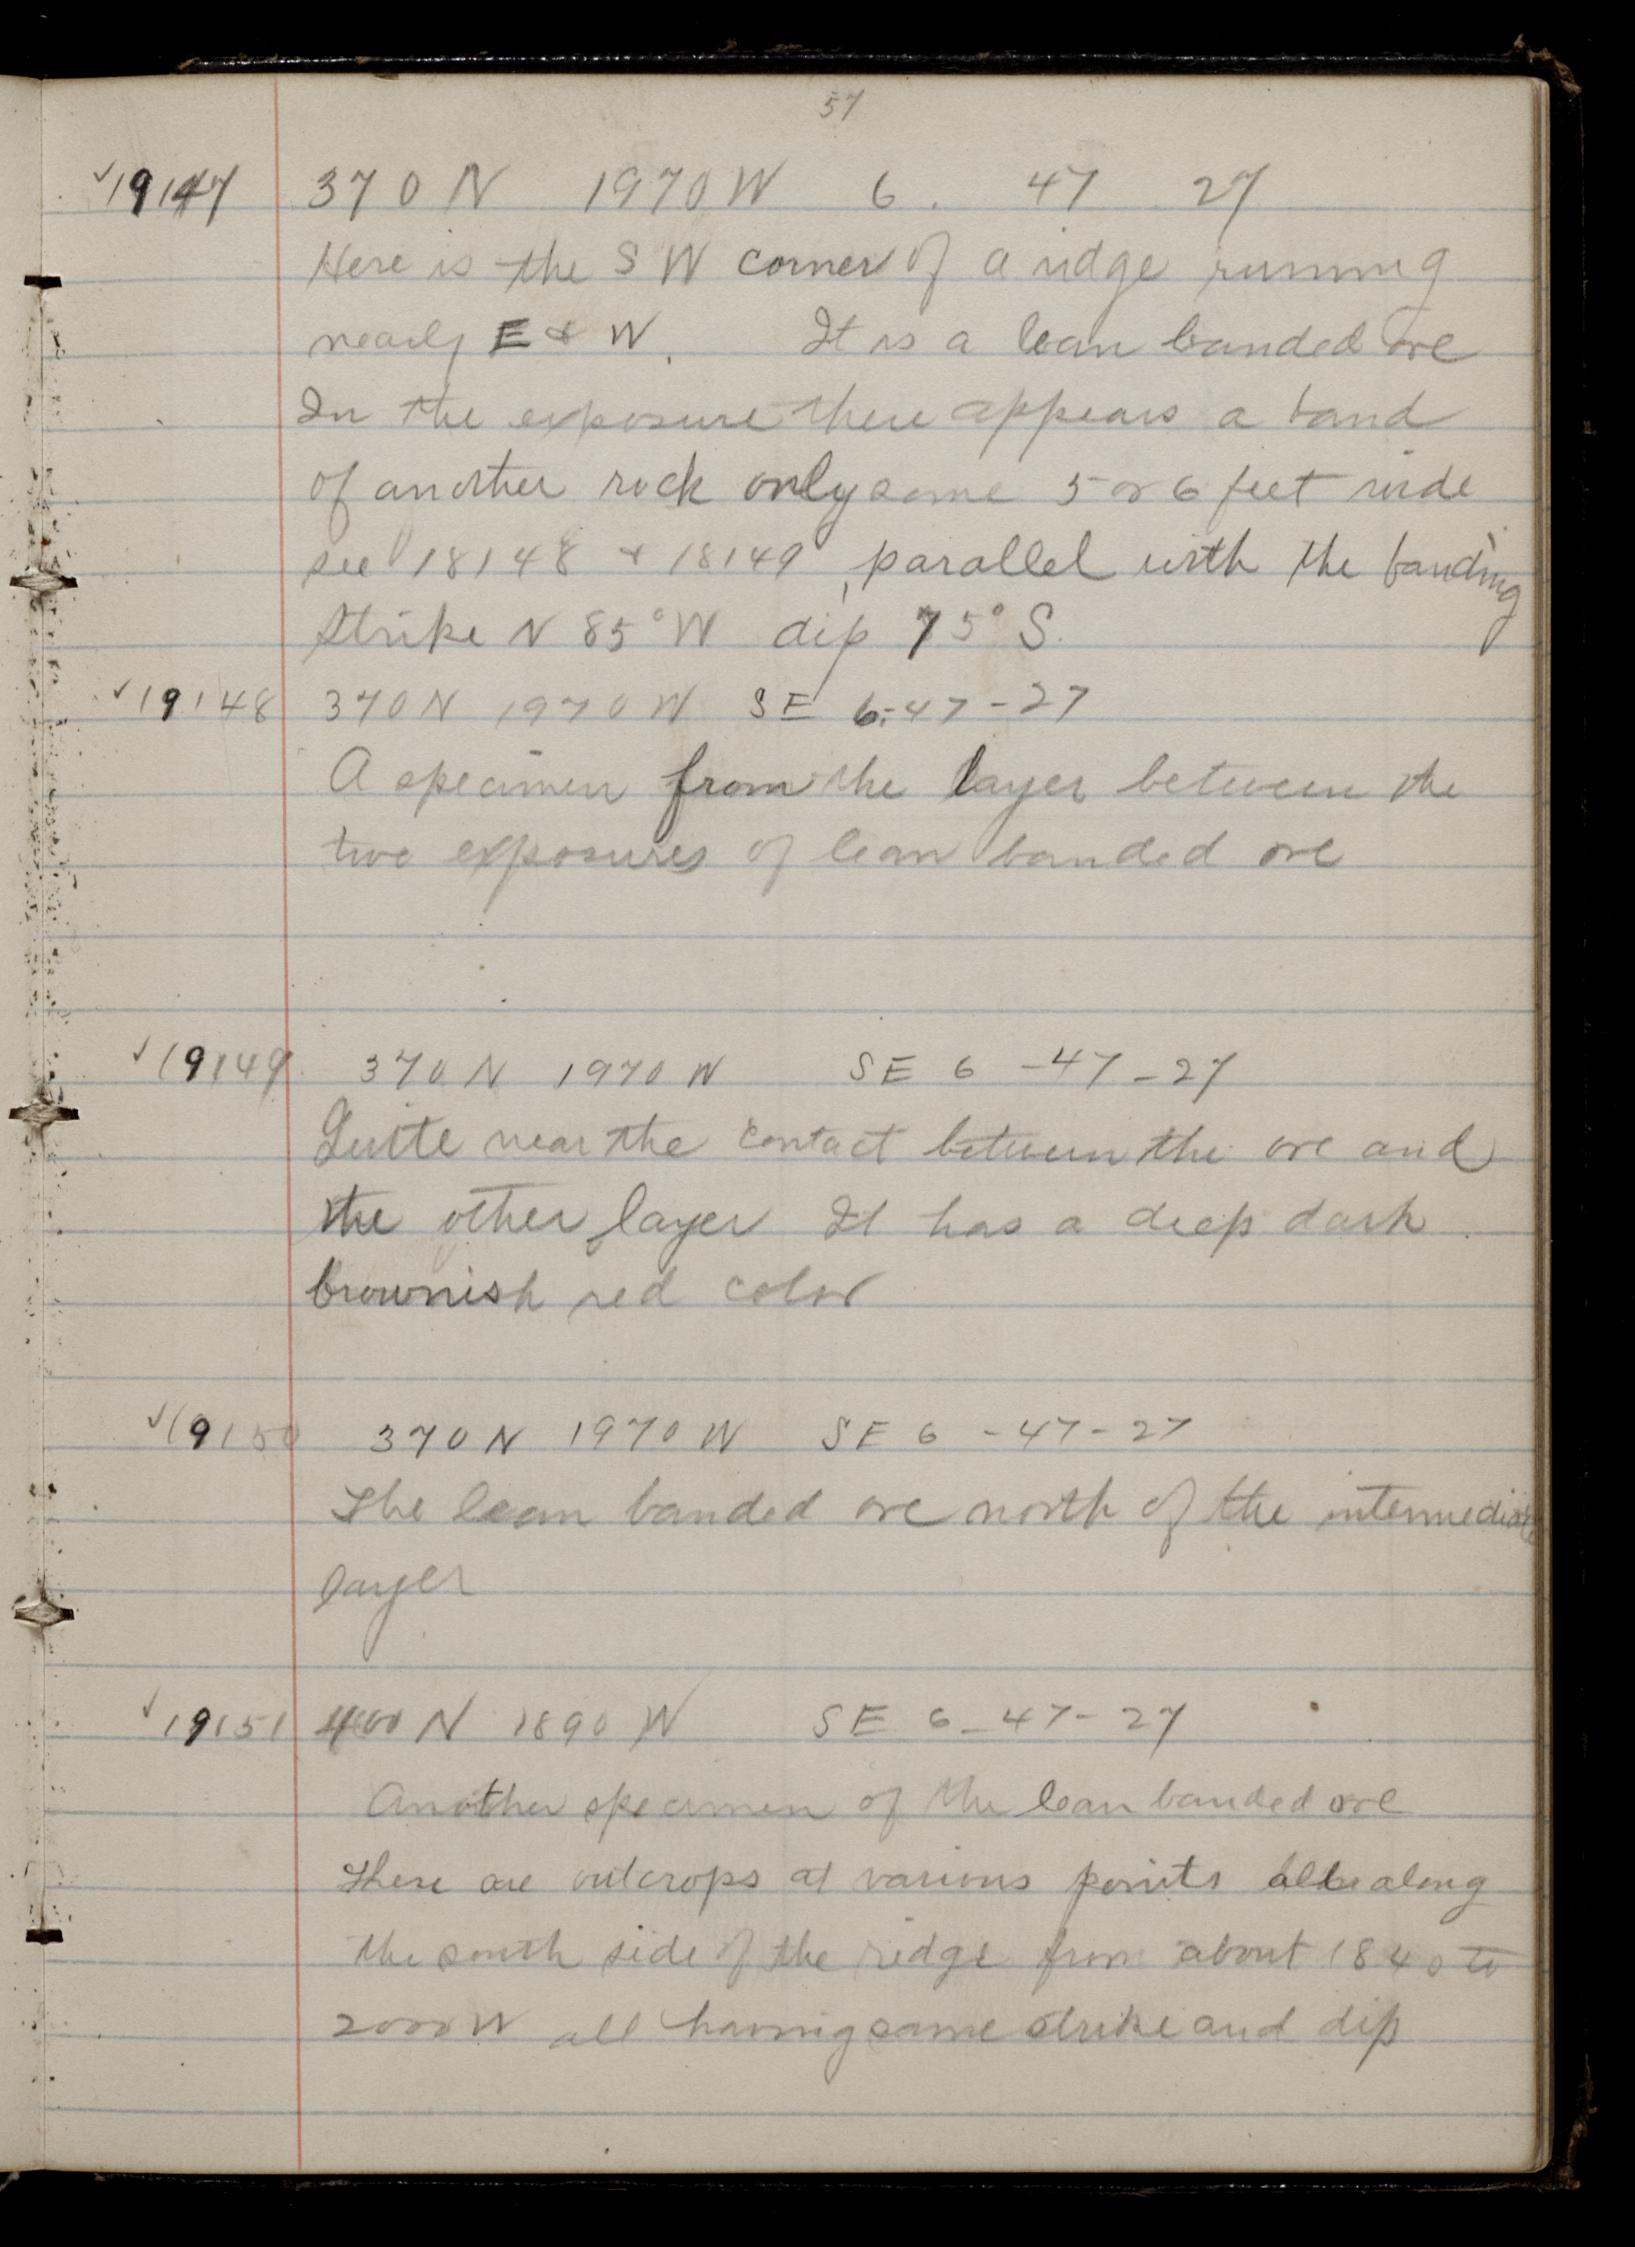 57
✓19147 370 N 1970 W 6. 47 27
Here is the S W corner of a ridge running
nearly E & W. It is a lean banded ore
In the exposure there appears a band
of another rock only some 5 or 6 feet wide
see 18148 & 18149, parallel with the banding
Strike N 85° W dip 75° S.
✓19148 370 N 1970 W SE 6-47-27
A specimen from the layer between the
two exposures of lean banded ore
✓19149 370 N 1970 W SE 6-47-27
Quite near the contact between the ore and
the other layer It has a deep dark
brownish red color
✓19150 370 N 1970 W SE 6-47-27
The lean banded ore north of the intermediate
layer
✓19151 400 N 1890 W SE 6-47-27
Another specimen of the lean banded ore
There are outcrops at various points all along
the south side of the ridge from about 1840 to
2000 W all having same strike and dip